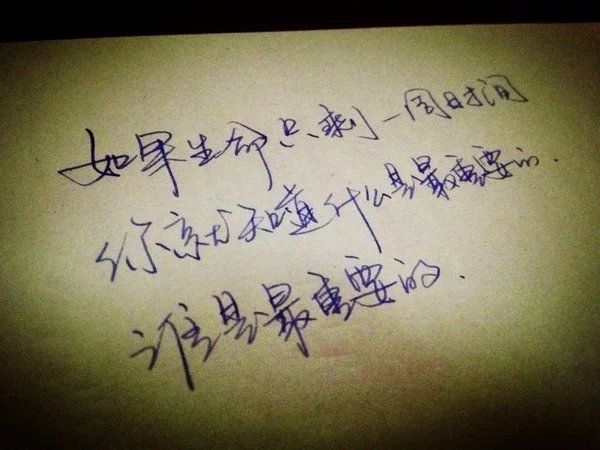 如果生命只剩一周时间
你就知道什么是最重要的.
谁是最重要的.